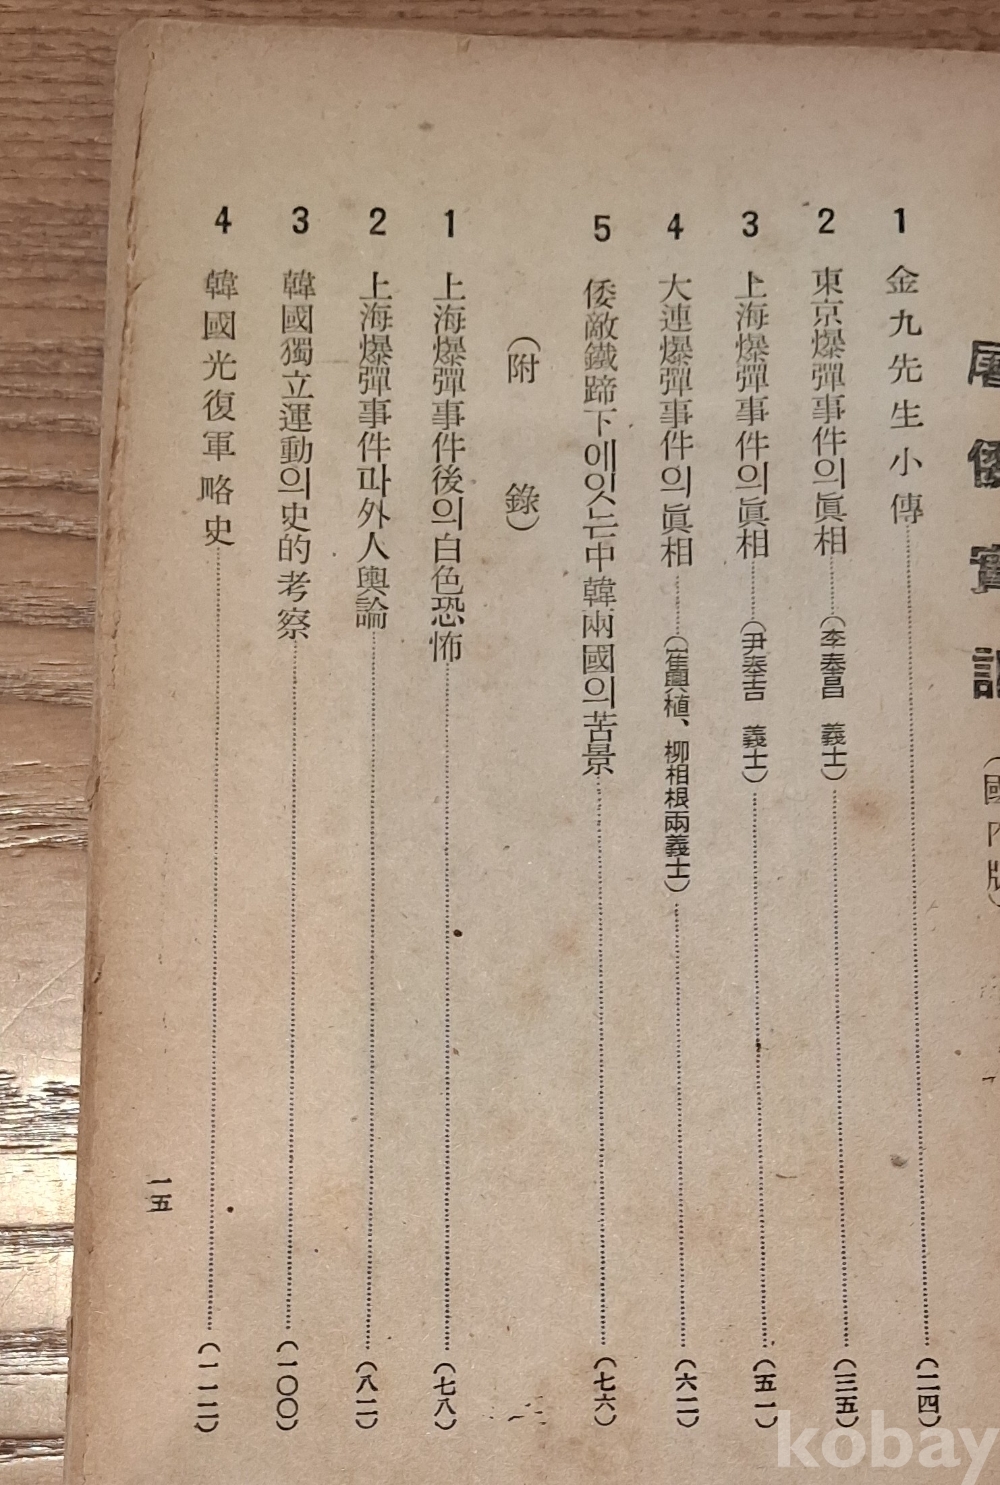 屠倭實記(國內版)
1 金九先生小傳……(二四)
2 東京爆彈事件의眞相……(李奉昌 義士)……(三五)
3 上海爆彈事件의眞相……(尹奉吉 義士)……(五一)
4 大連爆彈事件의眞相……(崔興植、柳相根兩義士)……(六二)
5 倭敵鐵蹄下에잇는中韓兩國의苦景……(七六)
(附 錄)
1 上海爆彈事件後의白色恐怖……(七八)
2 上海爆彈事件과外人輿論……(八二)
3 韓國獨立運動의史的考察……(一〇〇)
4 韓國光復軍略史……(一一二)
一五
kobay